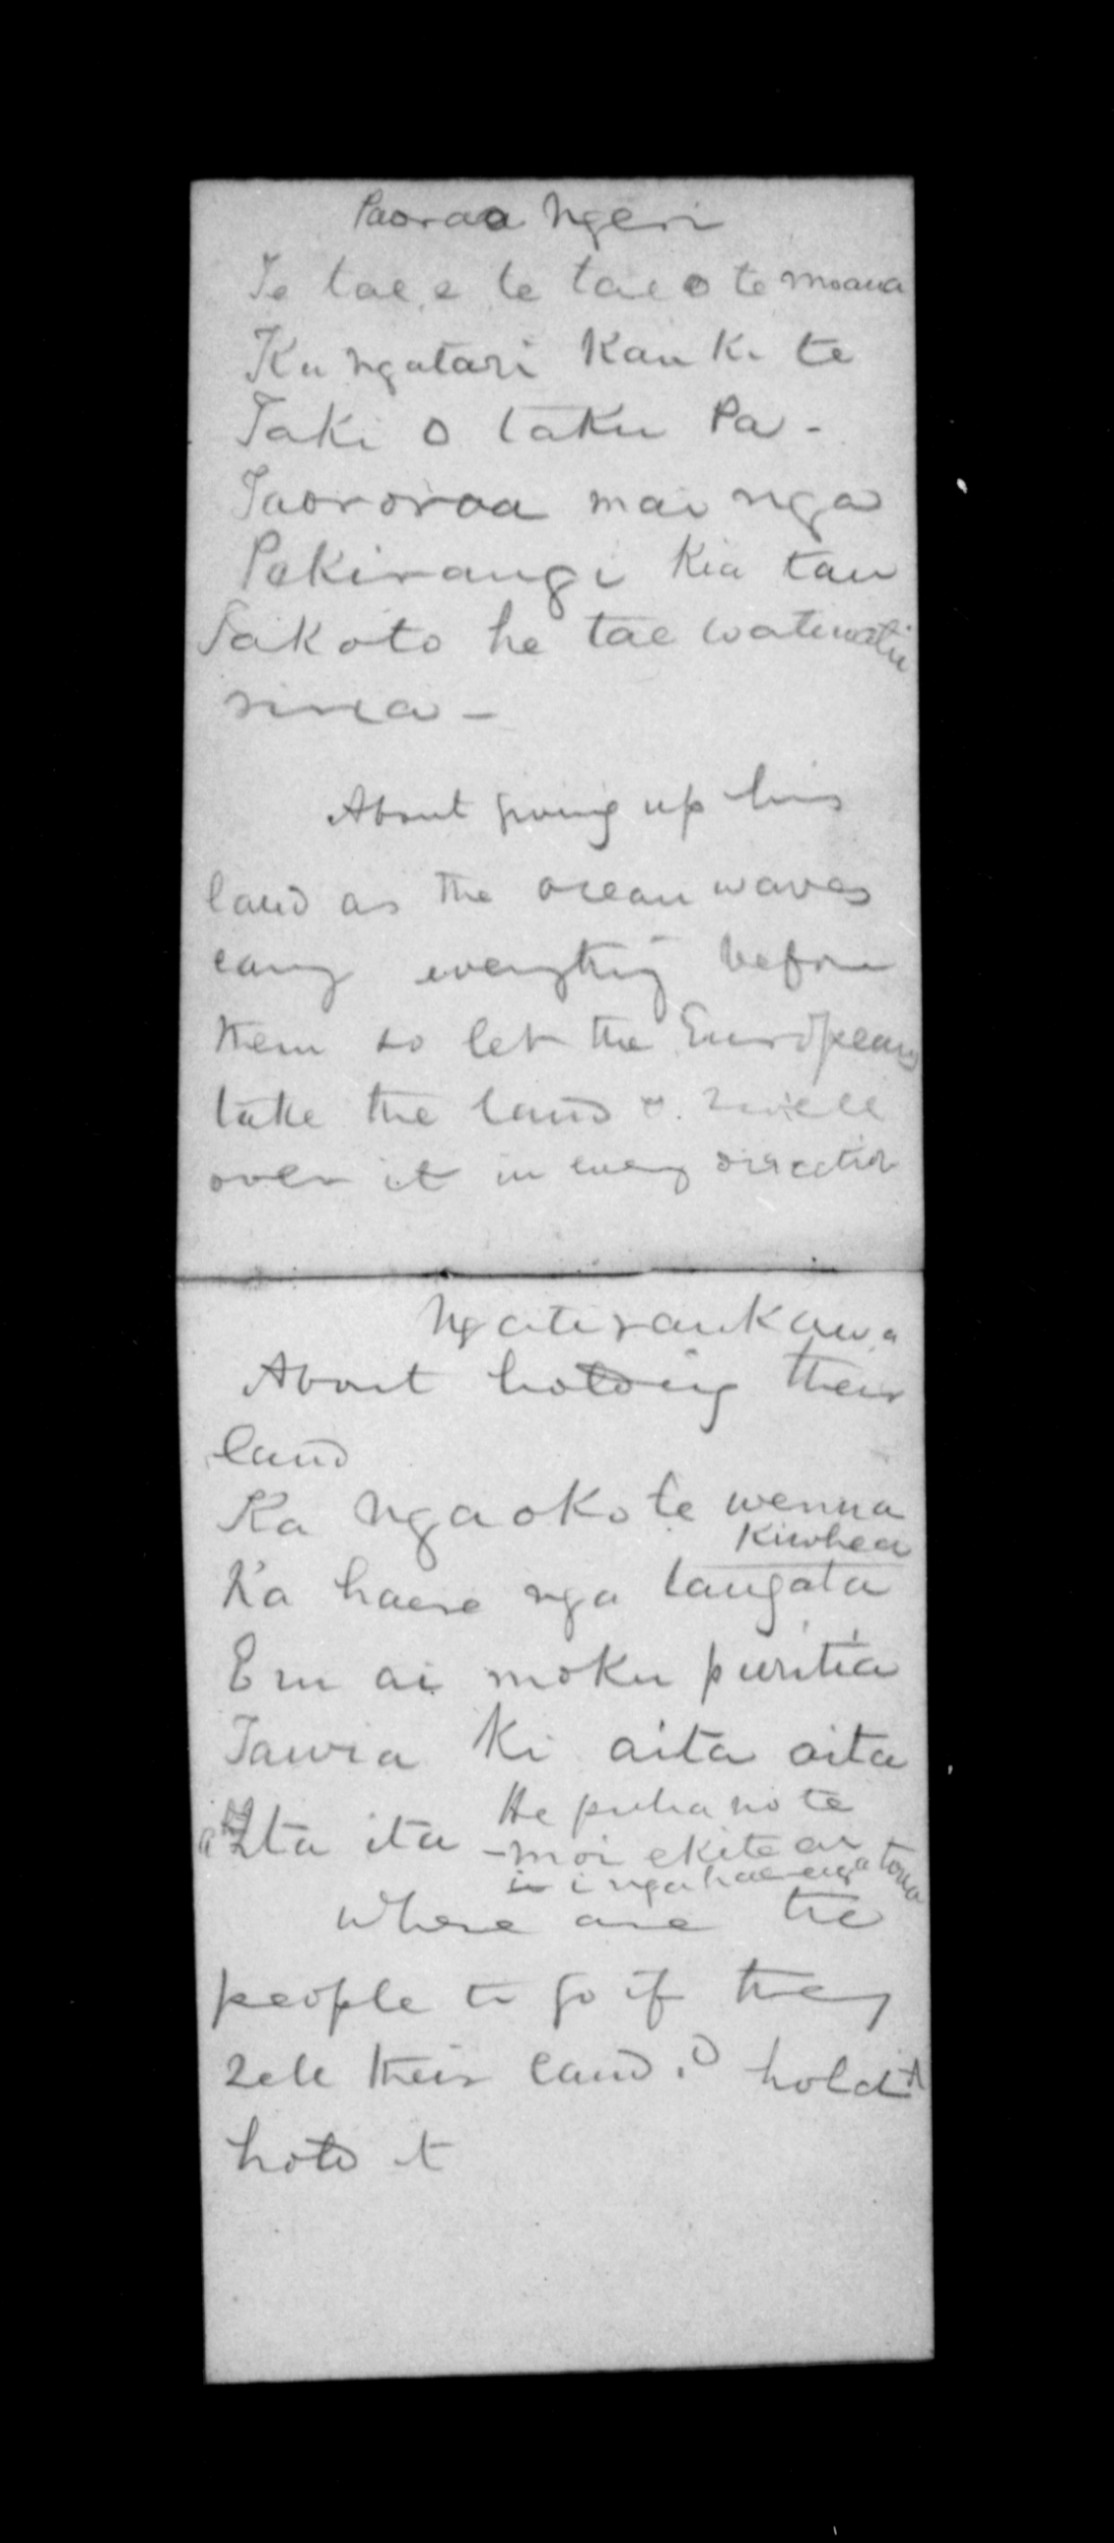 Paoraa Ngeri
Te tae e te tae o te moana
Ku ngatari Kau Ki te
Taki o taku Pa -
Taororoa mai nga
Pakirangi Kia tau
Takoto he tae
rirra -
About giving up his
land as the ocean waves
carry everything before
them so let the Europeans
take the land & swell
over it in every direction
Ngatiraukawa
About holding their
land
Ka Ngaoko te wenua
Kiwhea
Ka haere nga tangata
E ru ai moku puritia
Tawia Ki aita aita
Ita ita - He puha no te
moi ekite ao
i ngahaerenga toua
Where are the
people to go if they
sell their land? hold it
hold it